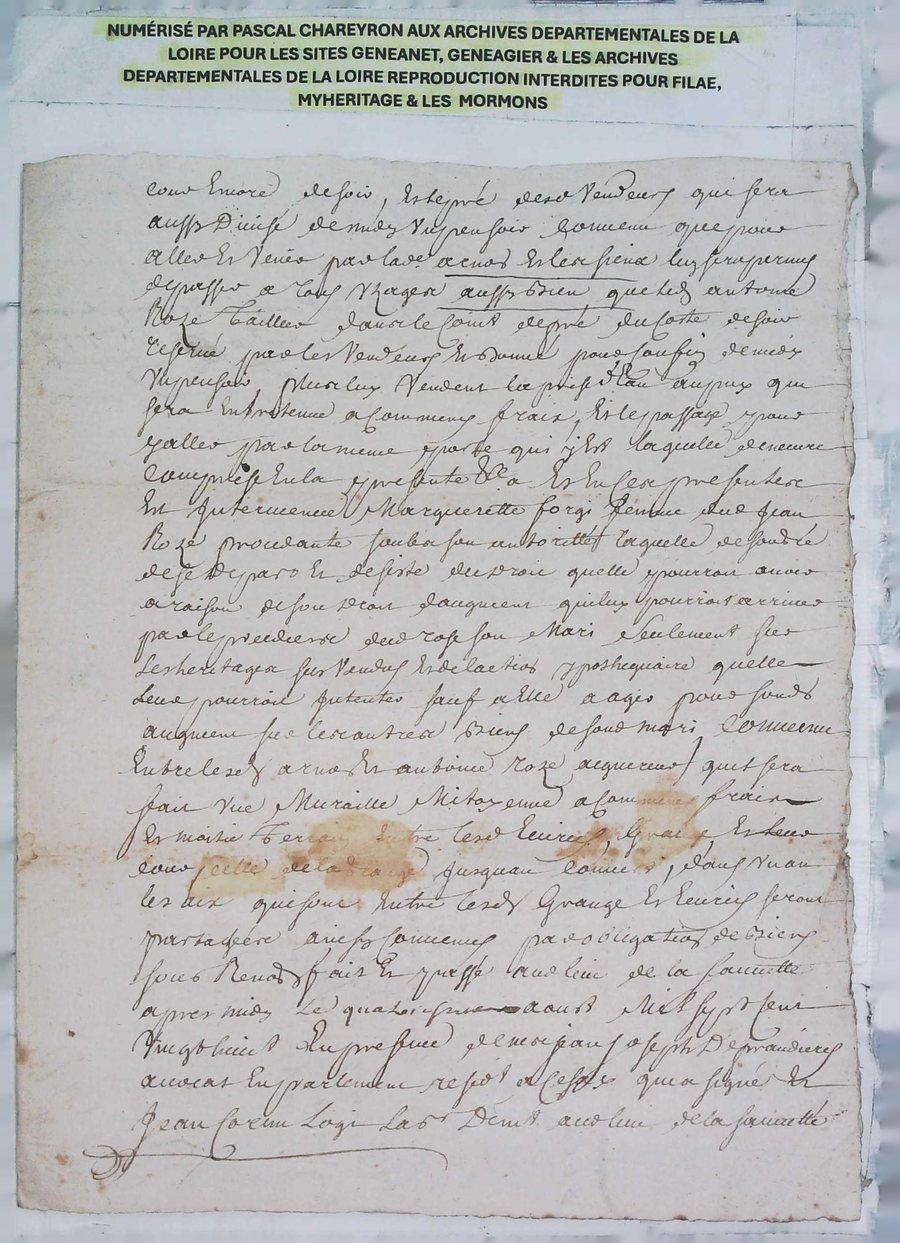 NUMÉRISÉ PAR PASCAL CHAREYRON AUX ARCHIVES DEPARTEMENTALES DE LA
LOIRE POUR LES SITES GENEANET, GENEAGIER & LES ARCHIVES
DEPARTEMENTALES DE LA LOIRE REPRODUCTION INTERDITES POUR FILAE,
MYHERITAGE & LES MORMONS
de soir, Et le pré desd Vendeurs qui sera
aussy Divisé de midy convenu que pour
aller Et Venir par lad. arnos Et les siens luy sera permis
de passer a tous Uzages aussy bien que led antoine
Roze Tailleur dans le Coint de pré du Coste de soir
reservé par les Vendeurs Et donné pour Confin de midy
plus luy Vendent la prise d'Eau au qui
sera Entretenue a Communs frais, Et le passage pour
y aller par la meme porte qui y Est laquelle demeure
Comprise En la presente Et En ces presentes
Est Intervenue Margueritte forgi femme dud Jean
Roze procedante soubs son autoritté laquelle de son gré
de se Depart Et desiste du droit quelle pourroit avoir
a raison de son droit daugment qui luy pourroit arriver
par le predeces dud roze son Mari Seulement sur
Les heritages sus Vendus Et de laction ypothequaire quelle
Leur pourroit Intenter sauf a Elle a agir pour sond
augment sur les autres biens de sond mari, Convenu
Entre lesd arnos Et antoine roze acquereurs quil sera
fait Une Muraille Mitoyenne a Communs frais
Et moitié Terrain Entre lesd Ecuries, Grange Et leur
cour celle de la Grange Jusquau
les ais qui sont Entre lesd Grange Et Ecuries seront
partagées ainsy Convenus par obligation de biens
sous Renons fait Et passé aud lieu de la
apres midy Le quatorsieme aoust Mil sept Cent
Vingt huit En presence de moi Jean Joseph
avocat En parlement resid a Ceste qui a signé Et
Jean Lab Dem aud lieu de la